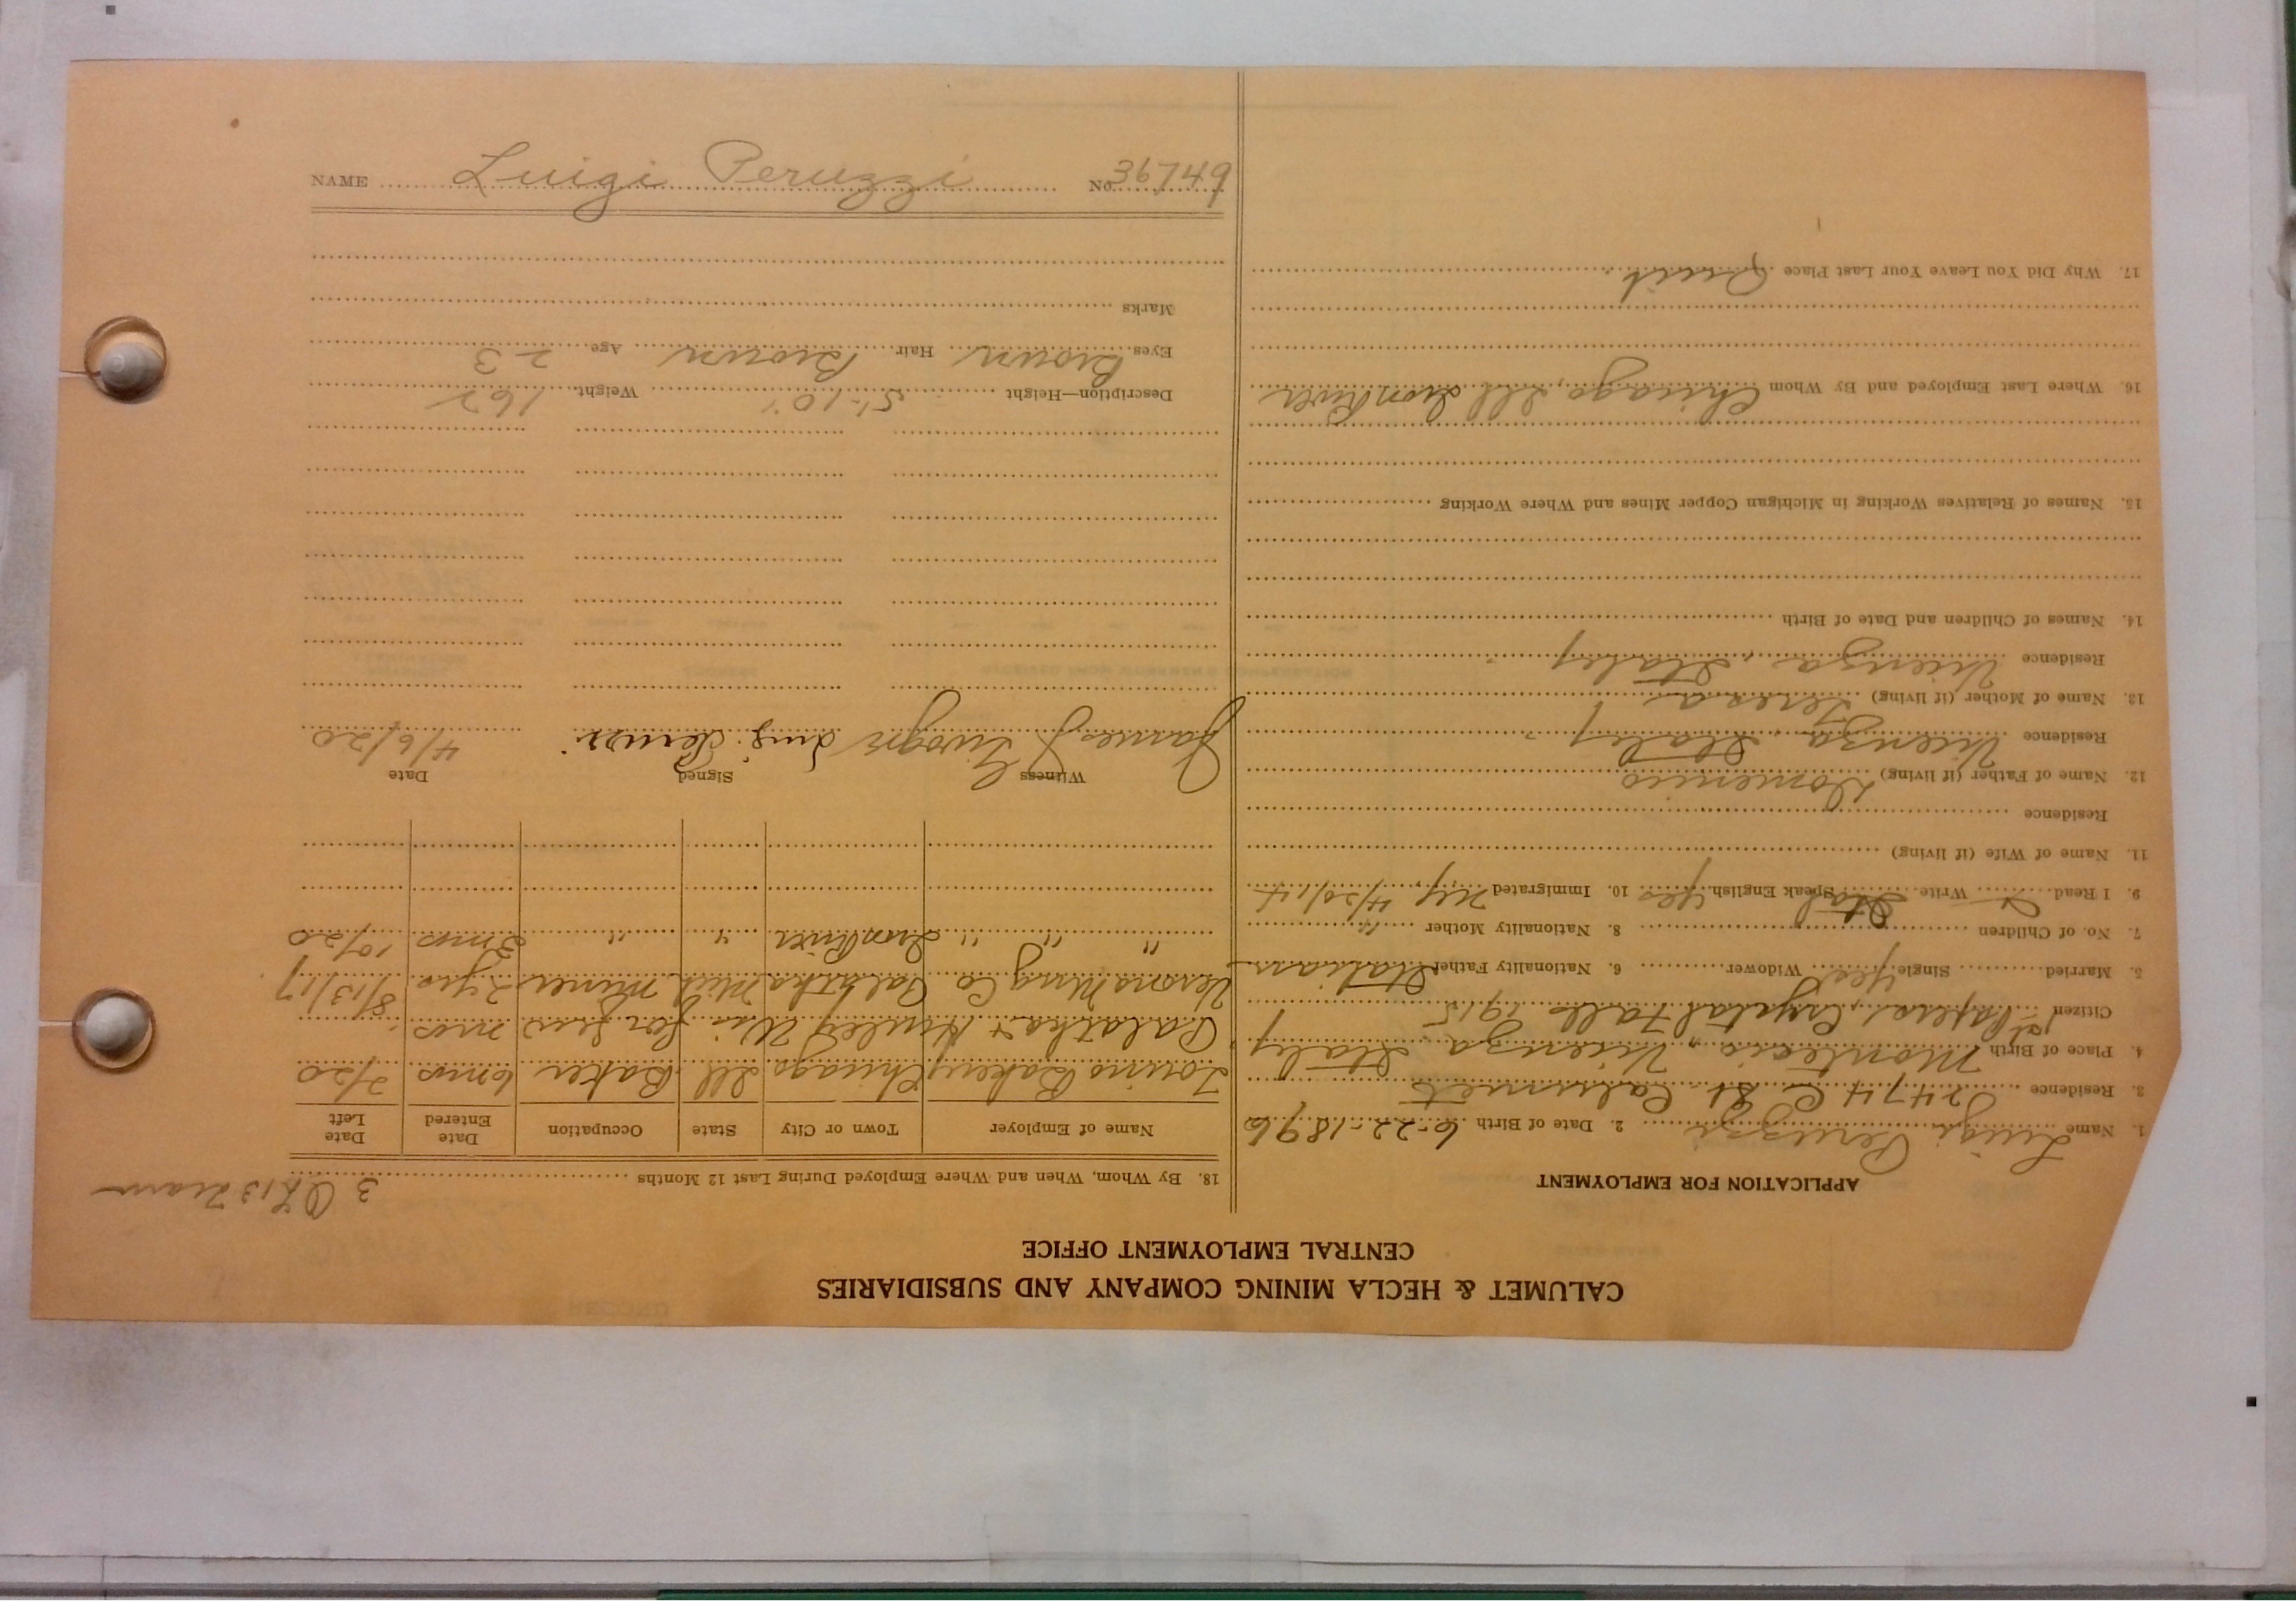 CALUMET & HECLA MINING COMPANY AND SUBSIDIARIES
CENTRAL EMPLOYMENT OFFICE
APPLICATION FOR EMPLOYMENT
1. Name Luigi Peruzzi 2. Date of Birth 6-22-1896
3. Residence 2474 C St. Calumet
4. Place of Birth Montecio, Vicenza, Italy
Citizen 1st Papers, Crystal Falls 1915
5. Married Single yes Widower 6. Nationality Father Italian
7. No. of Children 8. Nationality Mother "
9. I Read Write Ital Speak English yes 10. Immigrated N.Y. 4/20/14
11. Name of Wife (if living)
Residence
12. Name of Father (if living) Domenico
Residence Vicenza, Italy
13. Name of Mother (if living) Teresa
Residence Vicenza, Italy
14. Names of Children and Date of Birth
15. Names of Relatives Working in Michigan Copper Mines and Where Working
16. Where Last Employed and By Whom Chicago, Ill Iron River
17. Why Did You Leave Your Last Place Quit
3 OK 13
18. By Whom, When and Where Employed During Last 12 Months
Name of Employer Town or City State Occupation Date Entered Date Left
Bakery Chicago Ill Baker 6 mos 2/20
Palatka & Hurley Wis for few mos
Verona Mng Co. Palatka Mich Miner 2 yrs 8/13/17
" " " Iron River " " 3 mos 10/20
Witness Signed Date
James Luig. Peruzi 4/6/20
Description—Height 5'-10" Weight 162
Eyes Brown Hair Brown Age 23
Marks
NAME Luigi Peruzzi No. 36749